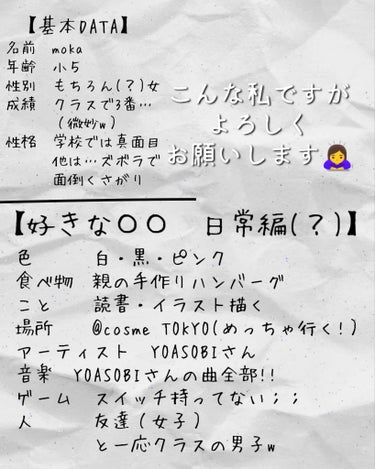 【基本DATA】
名前 moka
年齢 小5
性別 もちろん(?)女
成績 クラスで3番…
(微妙w)
性格 学校では真面目
他は…ズボラで
面倒くさがり
こんな私ですが
よろしく
お願いします🙇‍♀️
【好きな○○ 日常編(?)】
色 白・黒・ピンク
食べ物 親の手作りハンバーグ
こと 読書・イラスト描く
場所 @cosme TOKYO(めっちゃ行く!)
アーティスト YOASOBIさん
音楽 YOASOBIさんの曲全部!!
ゲーム スイッチ持ってない；；
人 友達(女子)
と一応クラスの男子w